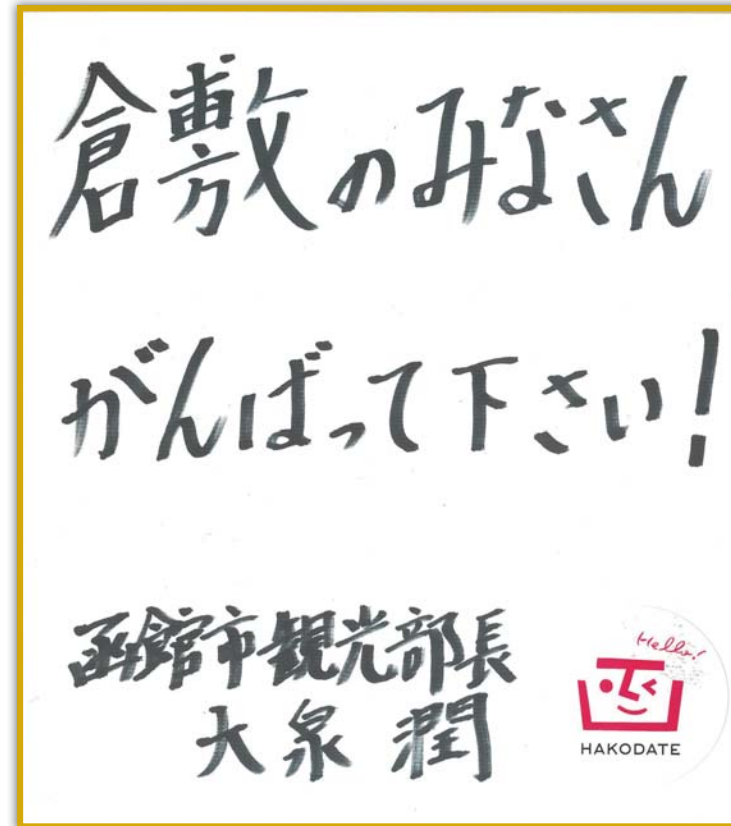 倉敷のみなさん
がんばって下さい!
函館市観光部長
大泉 潤
Hello!
HAKODATE